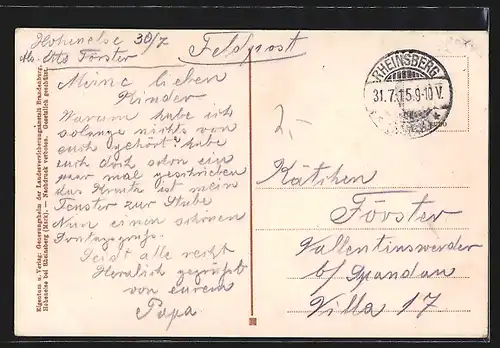 Hohenelse 30/7
Abs. Otto Förster
Feldpost
Meine lieben
Kinder
Warum habe ich
solange nichts von
euch gehört habe
euch doch schon ein
paar mal geschrieben
das Kreutz ist mein
Fenster zur Stube
Nun einen schönen
Sontagsgruss.
Seid alle recht
Herzlich gegrüßt
von eurem
Papa
RHEINSBERG
31.7.15.9-10 V.
2,-
Kätchen
Förster
Vallentinswerder
b/ Spandau
Villa 17
Eigentum u. Verlag: Genesungsheim der Landesversicherungsanstalt Brandenburg,
Hohenelse bei Rheinsberg (Mark). — Nachdruck verboten. Gesetzlich geschützt.